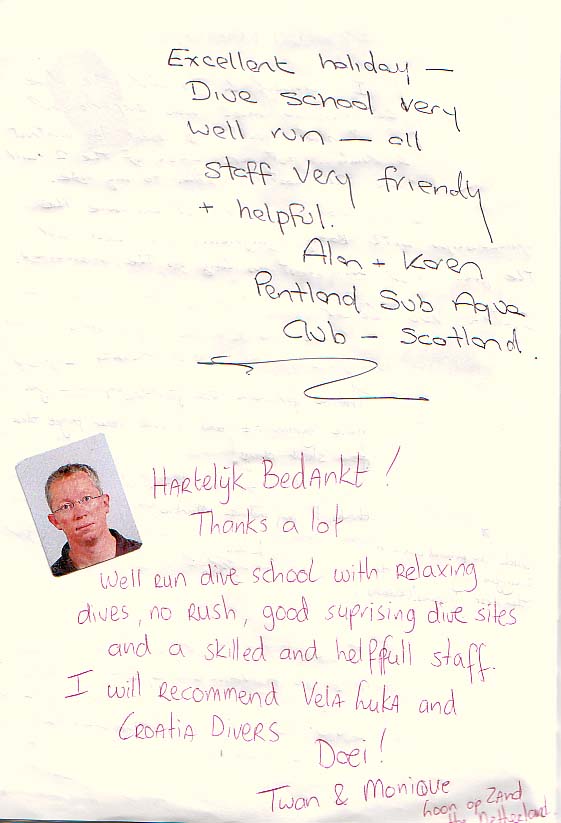 Excellent holiday –
Dive school very
well run – all
staff very friendly
+ helpful.
Alan + Karen
Pentland Sub Aqua
Club – Scotland.
Hartelijk Bedankt!
Thanks a lot
Well run dive school with relaxing
dives, no rush, good suprising dive sites
and a skilled and helpffull staff.
I will recommend Vela Luka and
Croatia Divers
Doei!
Twan & Monique
Loon op Zand
the Netherland